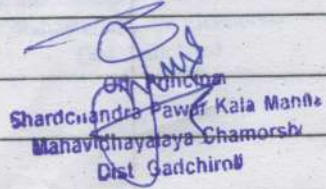 Shardchandra Pawar Kala Mahila
Mahavidhayalaya Chamorshi
Dist Gadchiroli